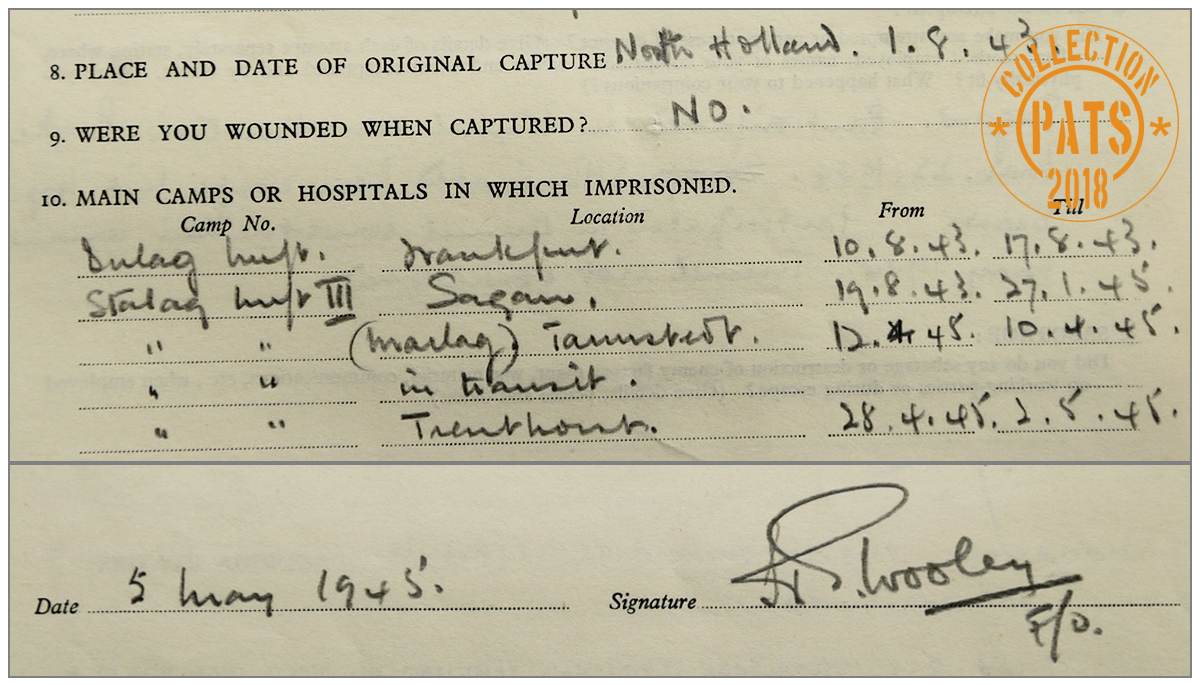 8. PLACE AND DATE OF ORIGINAL CAPTURE North Holland. 1.8.43.
9. WERE YOU WOUNDED WHEN CAPTURED? NO.
10. MAIN CAMPS OR HOSPITALS IN WHICH IMPRISONED.
Camp No. Location From Till
Dulag Luft. Frankfurt. 10.8.43. 17.8.43.
Stalag Luft III Sagan. 19.8.43. 27.1.45.
" " (Marlag) Tarmstedt. 12. 45. 10.4.45.
" " in transit.
" " Trenthorst. 28.4.45. 2.5.45.
Date 5 May 1945. Signature Wooley
F/O.
COLLECTION
* PATS *
2018